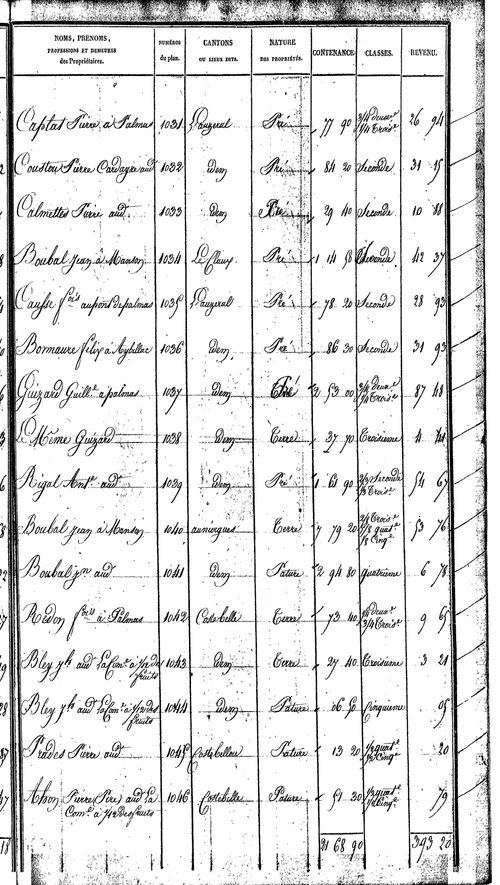 NOMS, PRÉNOMS, PROFESSIONS ET DEMEURES des Propriétaires. NUMÉROS du plan. CANTONS OU LIEUX DITS. NATURE DES PROPRIÉTÉS. CONTENANCE. CLASSES. REVENU.
Caplat Pierre à Palmas 1031 Lauzeral Pré 77 90 3/4 deux.e 1/4 trois.e 26 94
Coustou Pierre Cardayre aud. 1032 idem Pré 84 20 Seconde 31 15
Calmettes Pierre aud. 1033 idem Pré 29 40 Seconde 10 88
Boubal Jean à Manson 1034 Le Claux Pré 1 14 58 Seconde 42 37
Causse f.ois au pont de palmas 1035 Lauzerall Pré 78 20 Seconde 28 93
Bormaure félix à Aybillac 1036 idem Pré 86 30 Seconde 31 93
Guizard Guill.e à palmas 1037 idem Pré 2 53 00 3/4 deux.e 1/4 Trois.e 87 48
Le Même Guizard 1038 idem Terre 37 70 Troisieme 4
Rigal Ant.e aud. 1039 idem Pré 1 61 90 Seconde Trois.e 54 67
Boubal Jean à Manson 1040 Terre 7 79 20 Trois.e quat.e Cinq.e 53 76
Boubal j.n aud. 1041 idem Pature 2 94 80 quatrieme 6 78
Redon f.ois à Palmas 1042 Costebelle Terre 73 40 deux.e 3/4 Trois.e 9 65
Bley aud. la Com.e à 1/2 des fruits 1043 idem Terre 27 40 Troisieme 3 21
Bley aud. la Com.e à 1/2 des fruits 1044 idem Pature 06 50 Cinquieme 05
Prades Pierre aud. 1045 Costebellou Pature 13 20 1/2 quat.e 1/2 Cinq.e 20
Pierre (Père) aud. la Com.e à 1/2 des fruits 1046 Costebelle Pature 51 30 1/2 quat.e 1/2 Cinq.e 79
21 68 90 393 20